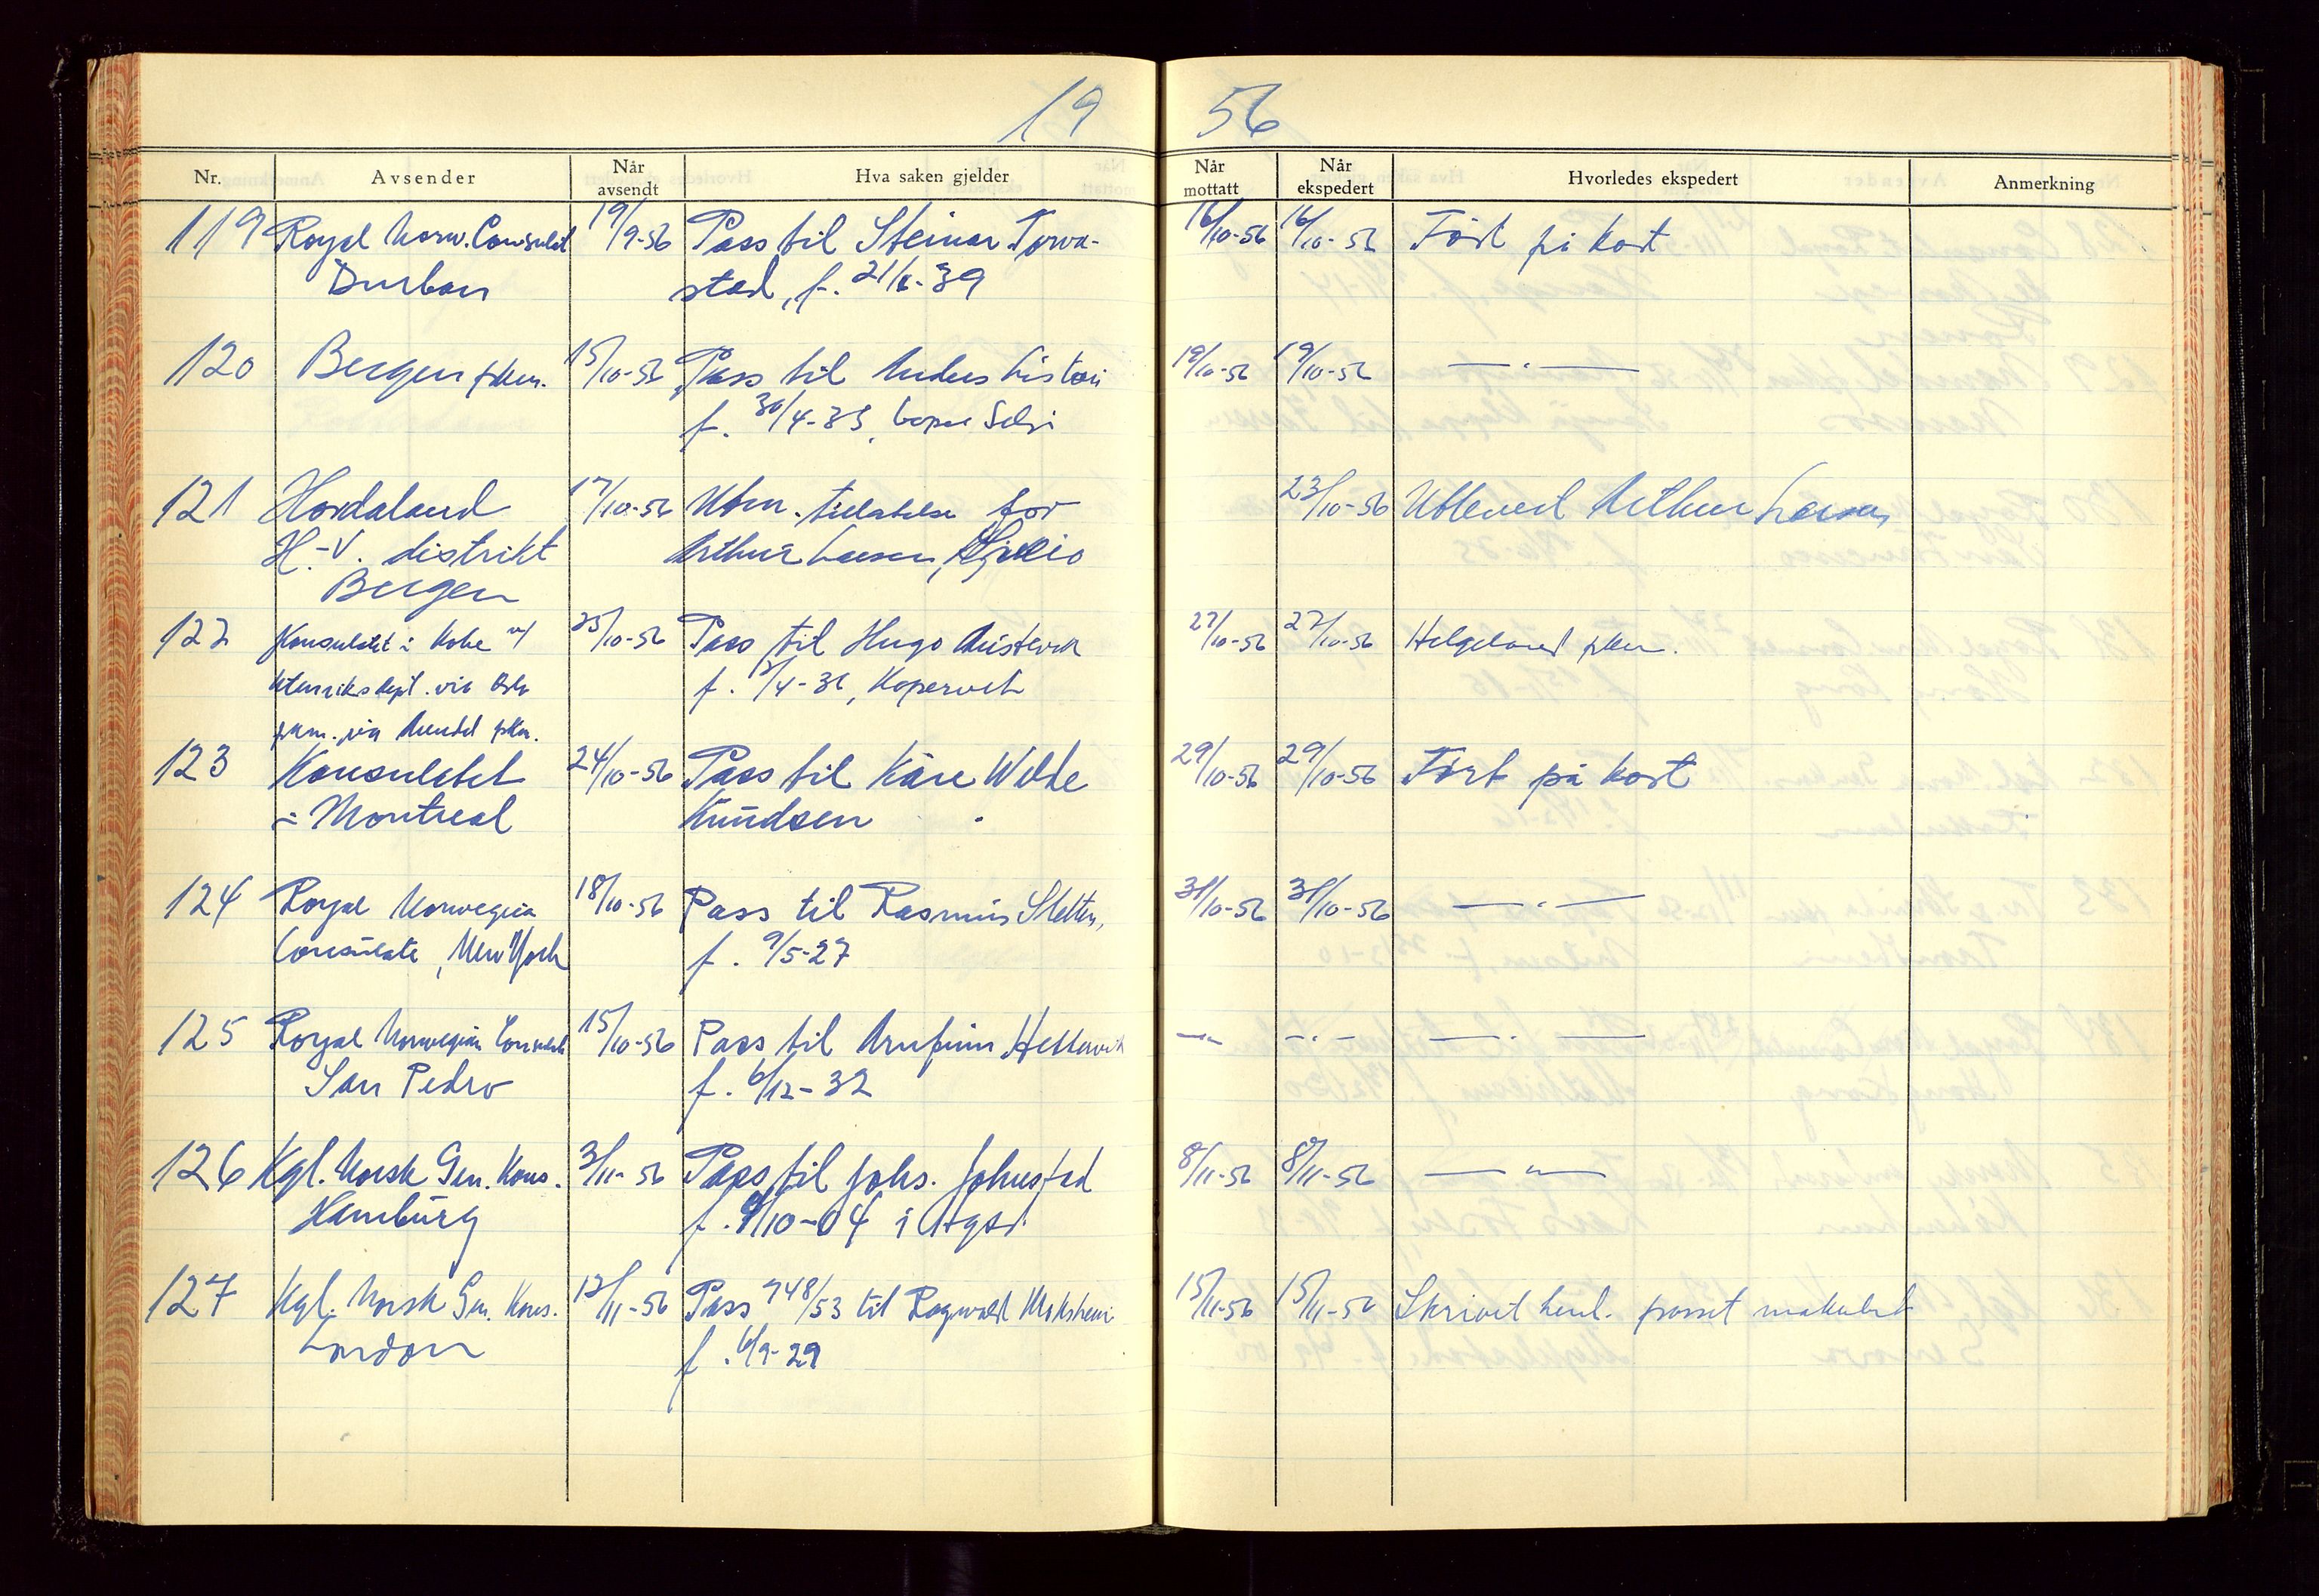 19 56
Nr. Avsender Når avsendt Hva saken gjelder Når mottatt Når ekspedert Hvorledes ekspedert Anmerkning
119 Royal Norw. Consulat 19/9-56 Pass til Steinar Torva- 16/10-56 16/10-56 Ført på kort
Durban stad, f. 21/6-39
120 Bergen pkm. 15/10-56 Pass til Anders 19/10-56 19/10-56 — " —
f. 30/4-33,
121 Hordaland 17/10-56 Utm. tillatelse for 23/10-56 Utlevert Arthur Larsen
H.-V. distrikt Arthur Larsen,
Bergen
122 Konsulatet i Kobe 25/10-56 Pass til Hugo 27/10-56 27/10-56 Helgeland pkm.
Utenriksdept. via Oslo f. /4-36, Kopervik
pkm. via Arendal pkm.
123 Konsulatet 24/10-56 Pass til Kåre Wilhe 29/10-56 29/10-56 Ført på kort
i Montreal Knudsen
124 Royal Norwegian 18/10-56 Pass til Rasmus 31/10-56 31/10-56 — " —
Consulate, New York f. 9/5-27
125 Royal Norwegian Consulate 15/10-56 Pass til Arnfinn Hettervik — " — — " — — " —
San Pedro f. 6/12-32
126 Kgl. Norsk Gen. Kons. 3/11-56 Pass til Johs. Johnstad 8/11-56 8/11-56 — " —
Hamburg f. 9/10-04 i
127 Kgl. Norsk Gen. Kons. 12/11-56 Pass 748/53 til Ragnvald 15/11-56 15/11-56 Skrivet henl. passet makulert
London f. 6/9-29